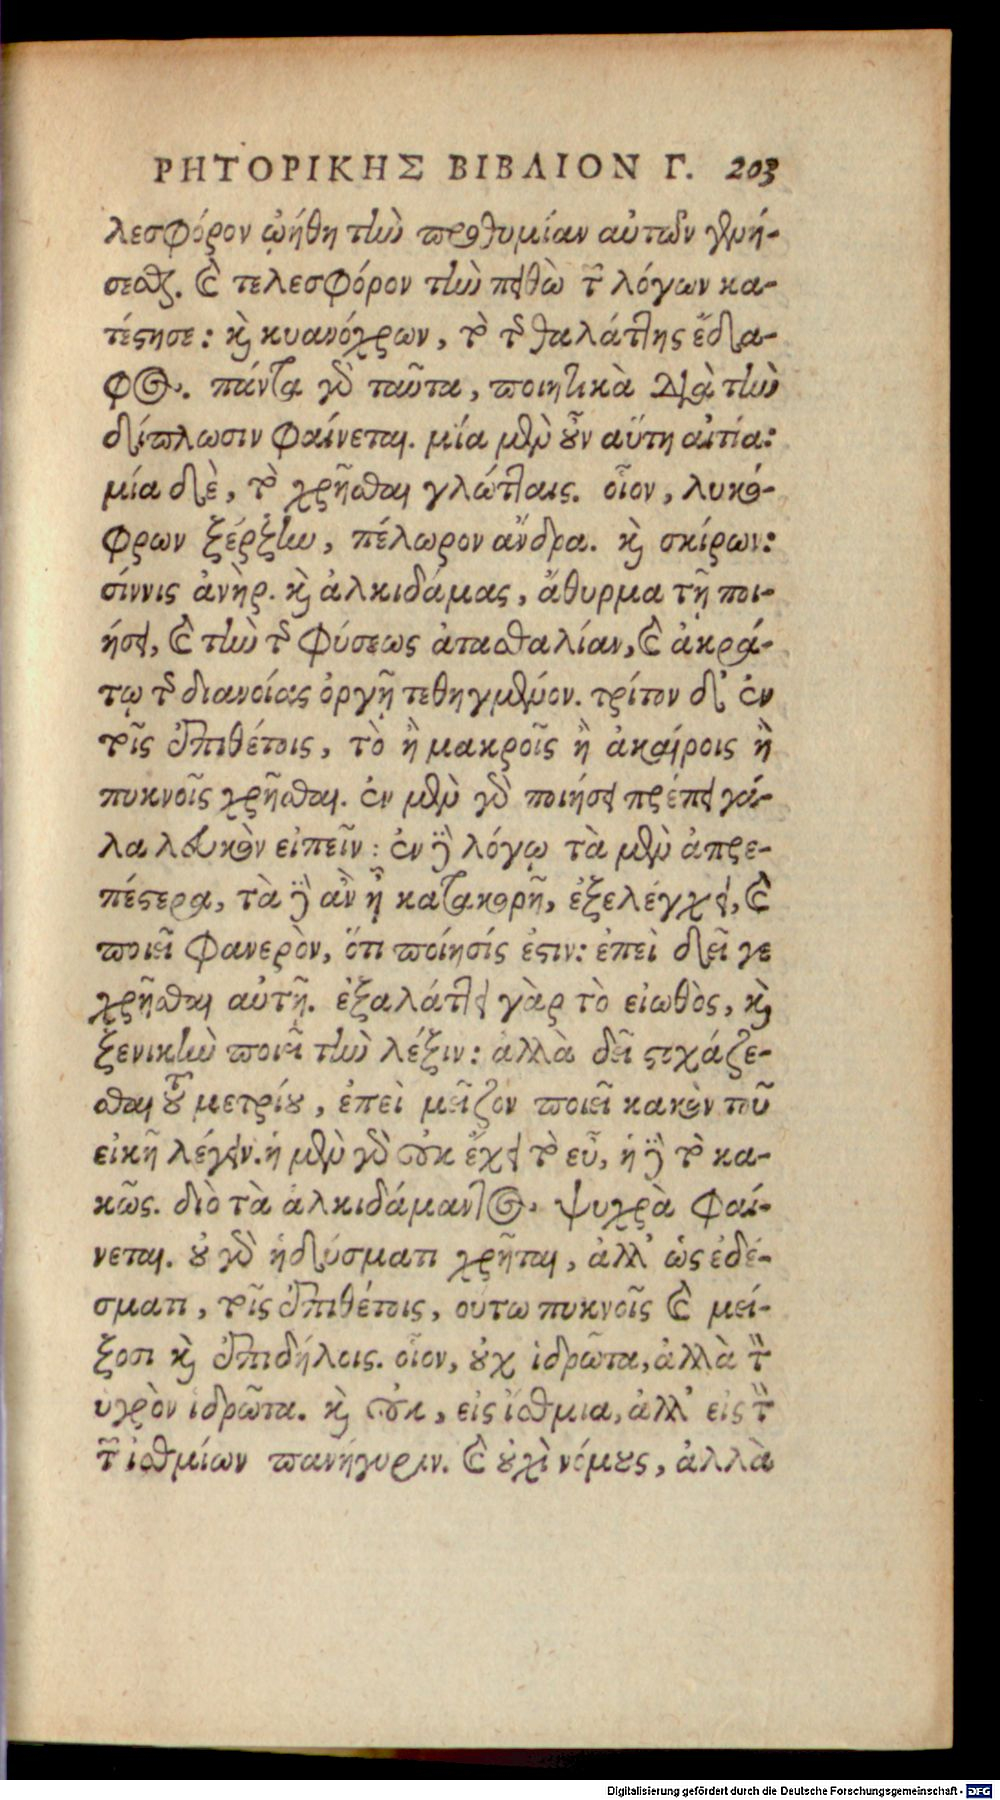 ΡΗΤΟΡΙΚΗΣ ΒΙΒΛΙΟΝ Γ. 203
λεσφόρον ᾠήθη τὴν προθυμίαν αὐτῶν γενή-
σεσθαι. καὶ τελεσφόρον τὴν πειθὼ τῶν λόγων κα-
τέστησε: καὶ κυανόχρων, τὸ τῆς θαλάττης ἔδα-
φος. πάντα γὰρ ταῦτα, ποιητικὰ διὰ τὴν
δίπλωσιν φαίνεται. μία μὲν οὖν αὕτη αἰτία:
μία δὲ, τὸ χρῆσθαι γλώτταις. οἷον, λυκό-
φρων ξέρξην, πέλωρον ἄνδρα. καὶ σκίρων:
σίννις ἀνὴρ. καὶ ἀλκιδάμας, ἄθυρμα τῇ ποι-
ήσει, καὶ τὴν τῆς φύσεως ἀτασθαλίαν, καὶ ἀκρά-
τῳ τῆς διανοίας ὀργῇ τεθηγμένον. τρίτον δ' ἐν
τοῖς ἐπιθέτοις, τὸ ἢ μακροῖς ἢ ἀκαίροις ἢ
πυκνοῖς χρῆσθαι. ἐν μὲν γὰρ ποιήσει πρέπει γά-
λα λευκὸν εἰπεῖν: ἐν δὲ λόγῳ τὰ μὲν ἀπρε-
πέστερα, τὰ δὲ ἂν ᾖ κατακορῆ, ἐξελέγχει, καὶ
ποιεῖ φανερὸν, ὅτι ποίησίς ἐστιν: ἐπεὶ δεῖ γε
χρῆσθαι αὐτῇ. ἐξαλάττει γὰρ τὸ εἰωθὸς, καὶ
ξενικὴν ποιεῖ τὴν λέξιν: ἀλλὰ δεῖ στοχάζε-
σθαι τοῦ μετρίου, ἐπεὶ μεῖζον ποιεῖ κακὸν τοῦ
εἰκῆ λέγειν. ἡ μὲν γὰρ οὐκ ἔχει τὸ εὖ, ἡ δὲ τὸ κα-
κῶς. διὸ τὰ ἀλκιδάμαντος ψυχρὰ φαί-
νεται. οὐ γὰρ ἡδύσματι χρῆται, ἀλλ' ὡς ἐδέ-
σματι, τοῖς ἐπιθέτοις, οὕτω πυκνοῖς καὶ μεί-
ζοσι καὶ ἐπιδήλοις. οἷον, οὐχ ἱδρῶτα, ἀλλὰ τὸν
ὑγρὸν ἱδρῶτα. καὶ οὐκ, εἰς ἴσθμια, ἀλλ' εἰς τὴν
τῶν ἰσθμίων πανήγυριν. καὶ οὐχὶ νόμους, ἀλλὰ
Digitalisierung gefördert durch die Deutsche Forschungsgemeinschaft - DFG